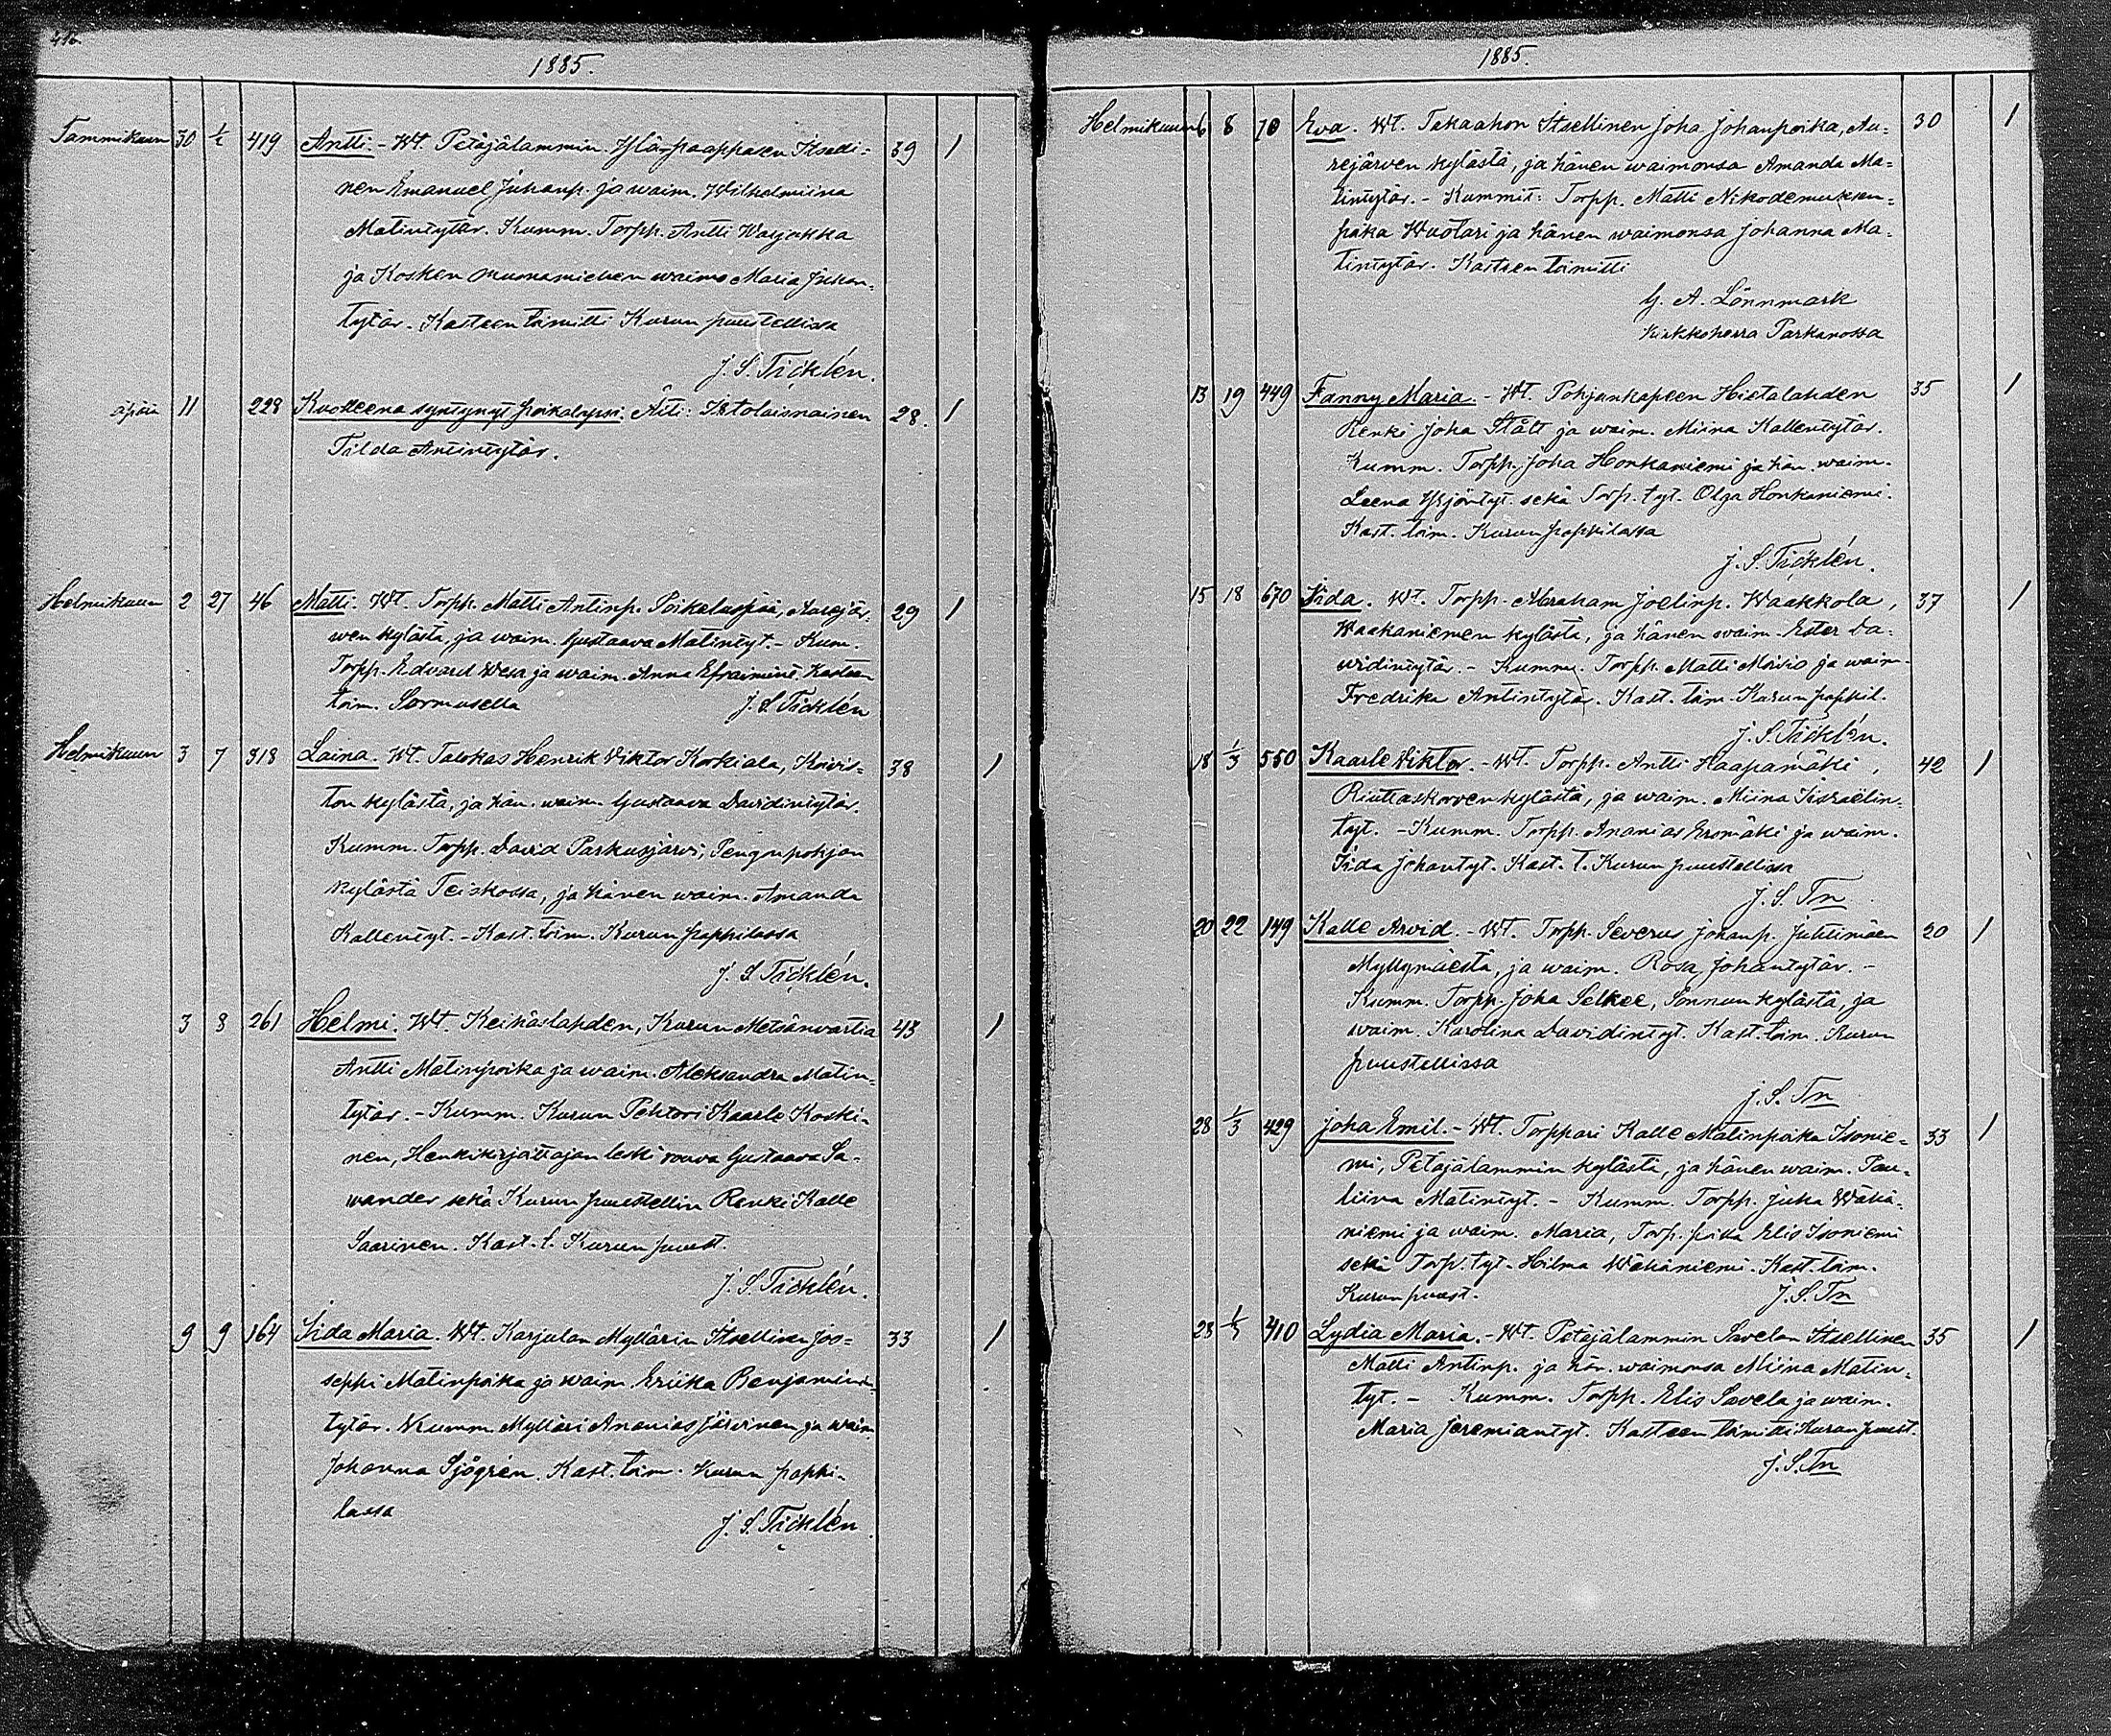 1885.
Tammikuun 30 1/2 419 Antti. - Wt. Petäjälammin Ylä-paappasen Itselli= 39 1
nen Emanuel Juhanp. ja waim. Wilhelmiina
Matintytär. Kumm. Torpp. Antti Warjakka
ja Kosken muonamiehen waimo Maria Juhan=
tytär. Kasteen toimitti Kurun puustellissa
J. S. Ticklén.
11 228 Kuolleena syntynyt poikalapsi. Äiti: Itetolaisnainen 28. 1
Tilda Antintytär.
Helmikuun 2 27 46 Matti. Wt. Torpp. Matti Antinp. Poikeluspää, Aurejär= 29 1
wen kylästä, ja waim. Gustaava Matintyt. - Kum.
Torpp. Edvard Wesa ja waim. Anna Efraimint. Kasteen
toim. Sormusella J. S. Ticklén
Helmikuun 3 7 318 Laina. Wt. Talokas Henrik Viktor Korkiala, Koivis= 38 1
ton kylästä, ja hän. waim. Gustaava Davidintytär.
Kumm. Torpp. David Parkusjärvi, Pengonpohjan
kylästä Teiskossa, ja hänen waim. Amanda
Kallentyt. - Kast. toim. Kurun pappilassa
J. S. Ticklén.
3 8 261 Helmi. Wt. Keihäslahden, Kurun Metsänvartia 43 1
Antti Matinpoika ja waim. Aleksandra Matin=
tytär. - Kumm. Kurun Pehtori Kaarlo Koski=
nen, Henkikirjottajan leski rouva Gustaava Sa=
wander sekä Kurun puustellin Renki Kalle
Saarinen. Kast. t. Kurun puust.
J. S. Ticklén.
9 9 164 Iida Maria. Wt. Karjulan Myllärin Itsellinen Joo= 33 1
seppi Matinpoika ja waim. Eriika Benjamins=
tytär. Kumm. Mylläri Ananias Järvinen ja waim.
Johanna Sjögrén. Kast. toim. Kurun pappi=
lassa J. S. Ticklén.
1885.
Helmikuun 6 8 70 Eva. Wt. Takaahon Itsellinen Joha Johanpoika, Au= 30 1
rejärven kylästä, ja hänen waimonsa Amanda Ma=
tintytär. - Kummit: Torpp. Matti Nikodemuksen=
poika Wuotari ja hänen waimonsa Johanna Ma=
tintytär. Kasteen toimitti
G. A. Lönnmark
Kirkkoherra Parkanossa
13 19 449 Fanny Maria. - Wt. Pohjankapeen Hietalahden 35 1
Renki Joha Stålt ja waim. Miina Kallentytär.
Kumm. Torpp. Joha Honkaniemi ja hän. waim.
Leena Yrjöntyt. sekä Torp. tyt. Olga Honkaniemi.
Kast. toim. Kurun pappilassa
J. S. Ticklén.
15 18 670 Iida. Wt. Torpp. Abraham Joelinp. Waakkola, 37 1
Waakaniemen kylästä, ja hänen waim. Ester Da=
widintytär. - Kumm. Torpp. Matti Moisio ja waim.
Fredrika Antintytär. Kast. toim. Kurun pappil.
J. S. Ticklén.
18 1/3 550 Kaarle Viktor. - Wt. Torpp. Antti Haapamäki, 42 1
Riuttaskorven kylästä, ja waim. Miina Israelin=
tyt. - Kumm. Torpp. Ananias Eromäki ja waim.
Iida Johantyt. Kast. t. Kurun puustellissa
J. S. Tn
20 22 149 Kalle Arvid. - Wt. Torpp. Severus Johanp. Juhtimäen 20 1
Myllymäestä, ja waim. Rosa Johantytär. -
Kumm. Torpp. Joha Selkee, Sonnun kylästä, ja
waim. Karolina Davidintyt. Kast. toim. Kurun
puustellissa
J. S. Tn
28 1/3 429 Joha Emil. - Wt. Torppari Kalle Matinpoika Isonie= 33 1
mi, Petäjälammin kylästä, ja hänen waim. Pau=
liina Matintyt. - Kumm. Torpp. Juha Wähä=
niemi ja waim. Maria, Torp. poika Elis Isoniemi
sekä Torp. tyt. Hilma Wähäniemi. Kast. toim.
Kurun puust. J. S. Tn
28 1/3 410 Lydia Maria. - Wt. Petäjälammin Savelan Itsellinen 35 1
Matti Antinp. ja hän. waimonsa Miina Matin=
tyt. - Kumm. Torpp. Elis Savela ja waim.
Maria Jeremiantyt. Kasteen toimitti Kurun puust.
J. S. Tn